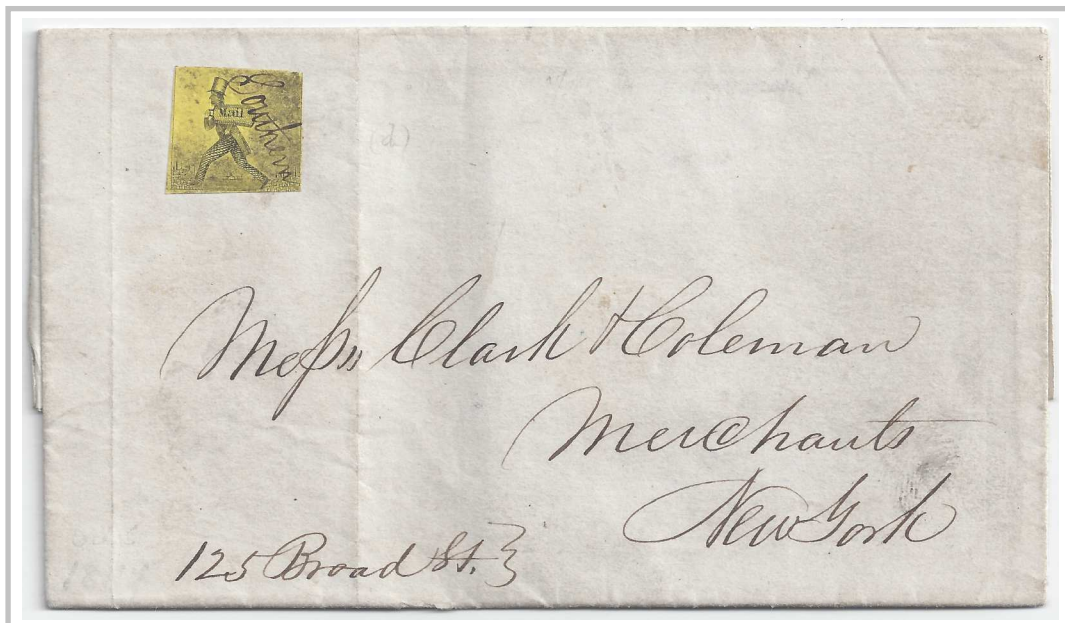 MAIL
Southern
(d)
Messrs Clark & Coleman
Merchants
New York
125 Broad St. }